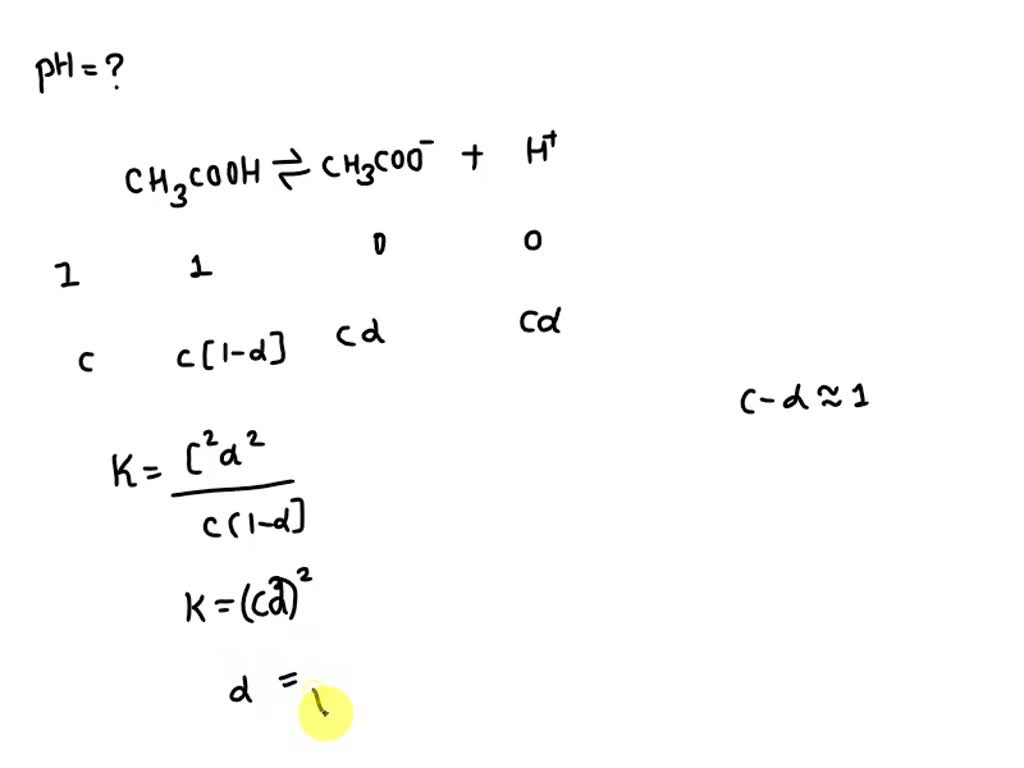 pH = ?
CH₃COOH ⇌ CH₃COO⁻ + H⁺
I 1 0 0
C C[1-α] Cα Cα
C-α ≈ 1
K = C²α² / C(1-α]
K = (Cα)²
α =